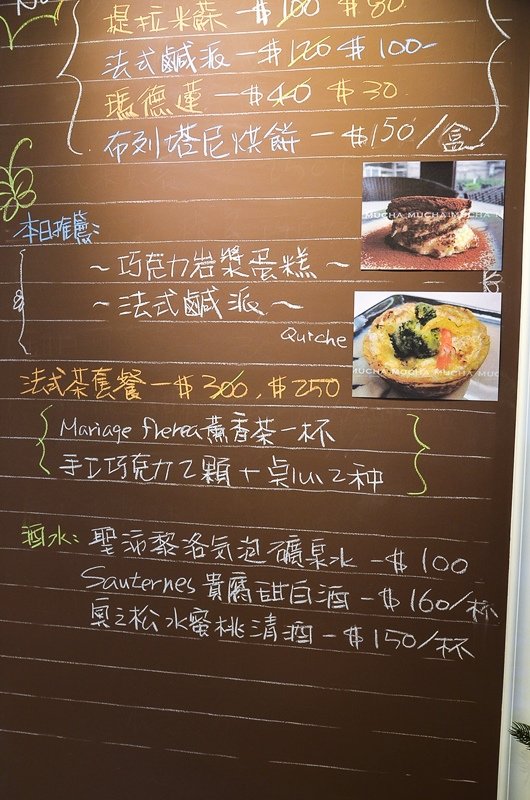 提拉米蘇 - $100 $80
法式鹹派 - $120 $100-
瑪德蓮 - $40 $30
布列塔尼烘餅 - $150/盒
本日推薦:
~巧克力岩漿蛋糕~
~法式鹹派~
Quiche
MUCHA MUCHA MUCHA
MUCHA MUCHA MUC
法式茶套餐 - $300, $250
Mariage frerea薰香茶一杯
手工巧克力2顆+桌心2种
酒水: 聖沛黎洛気泡礦泉水 - $100
Sauternes 貴腐甜白酒 - $160/杯
奧之松水蜜桃清酒 - $150/杯